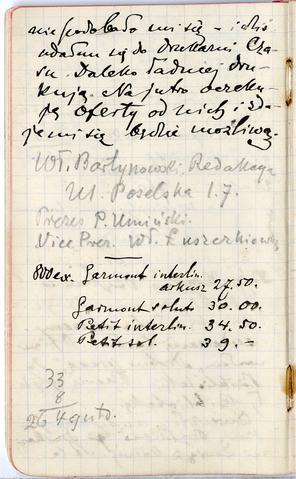 nie podobało mi się – i dziś
udałem się do drukarni Cza-
su. Daleko ładniej dru-
kują. Na jutro oczeku-
ję oferty od nich i zda-
je mi się będzie możliwą.
Wł. Bartynowski, Redakcya
Ul. Poselska l. 7.
Prezes P. Umiński.
Vice Prez. Wł. Łuszczkiewicz
800 ex. Garmont interlin.
arkusz 27.50.
Garmont solut 30.00.
Petit interlin. 34.50.
Petit sol. 39.–
33
8
264